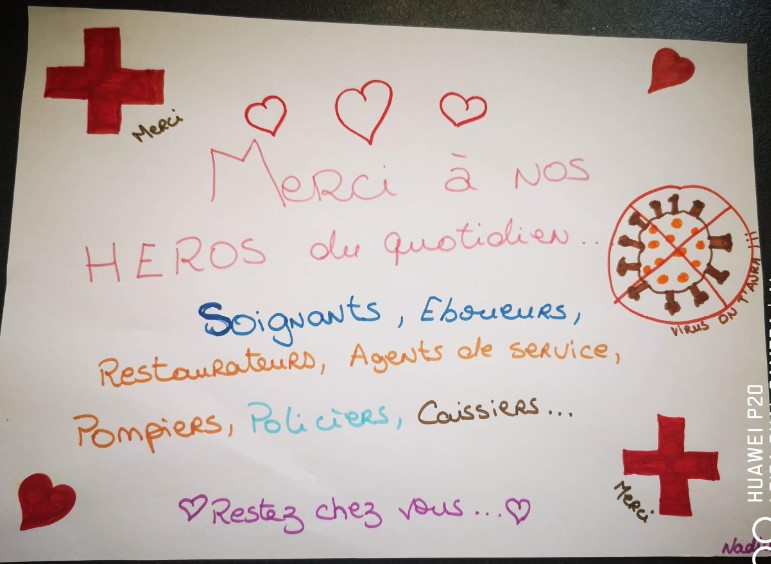 Merci
Merci à nos
HEROS du quotidien..
Soignants, Eboueurs,
Restaurateurs, Agents de service,
Pompiers, Policiers, Caissiers...
Restez chez vous...
VIRUS ON T'AURA !!!
Merci
HUAWEI P20